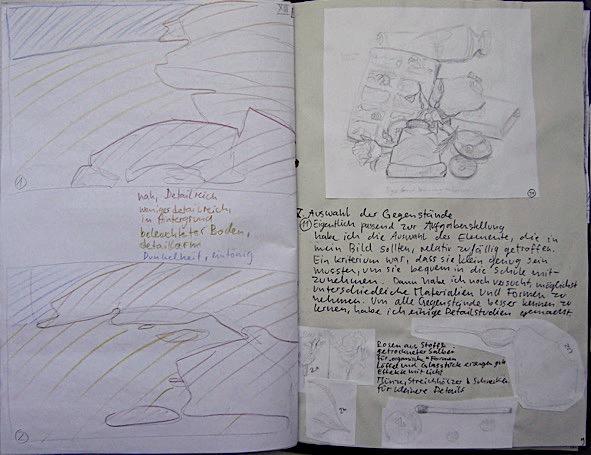 XIII
nah, Detailreich
weniger detailreich,
im Hintergrund
beleuchteter Boden,
detailarm
Dunkelheit, eintönig
1
2
X. Auswahl der Gegenstände
11 Eigentlich passend zur Aufgabenstellung
habe ich die Auswahl der Elemente, die in
mein Bild sollten, relativ zufällig getroffen.
Ein Kriterium war, dass sie klein genug sein
mussten, um sie bequem in die Schule mit-
zunehmen. Dann habe ich noch versucht, möglichst
unterschiedliche Materialien und Formen zu
nehmen. Um alle Gegenstände besser kennen zu
lernen, habe ich einige Detailstudien gemacht
Rosen aus Stoff &
getrockneter Salbei
für "organische" Formen
Löffel und Glasstücke erzeugen gute
Effekte mit Licht
Münze, Streichhölzer & Schnecken
für kleinere Details